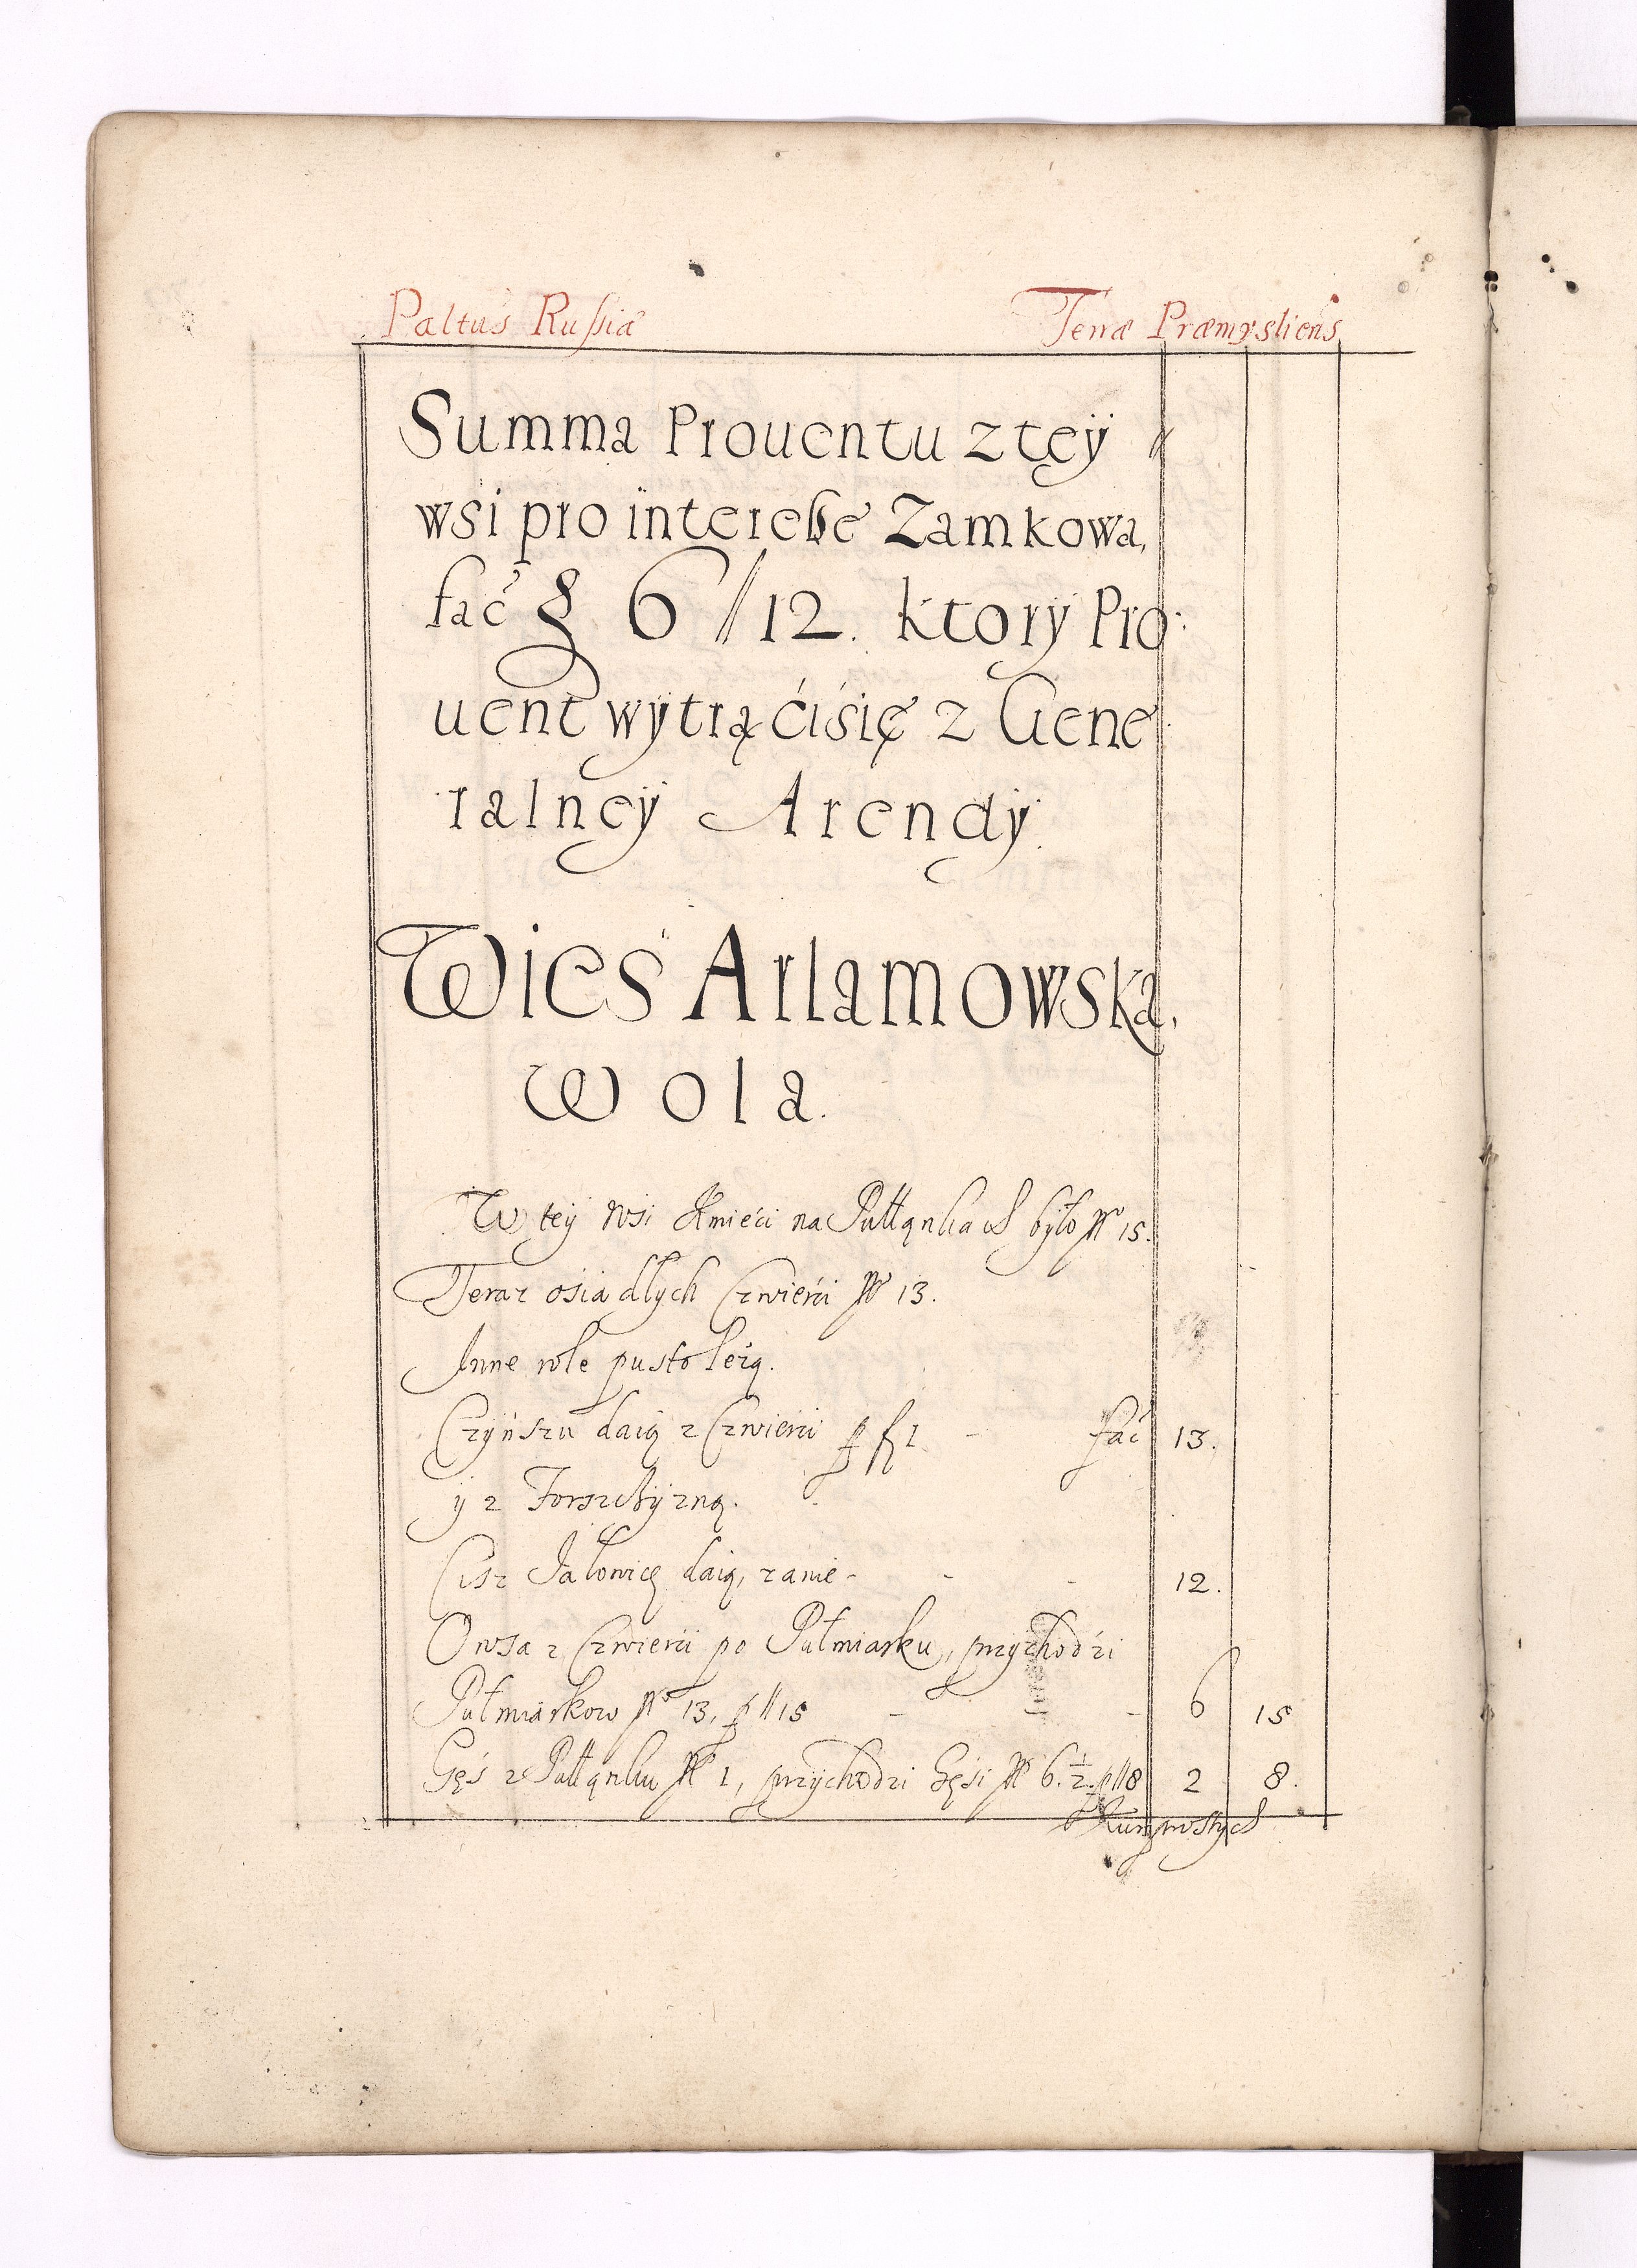 Paltus Rußiæ Terræ Præmysliens
Summa Prouentu z tęÿ
wsi pro intereße Zamkowa,
fać § 6 // 12. ktorÿ Pro:
uent wÿtrąćiśię z Gene
ralneÿ Arendÿ.
Wieś Arlamowska,
Wola.
W teÿ wsi Kmieći na Pułłąnkach bÿło N° 15.
Teraz ośiadłych Czwierći N° 13.
Inne role pusto leżą.
Czÿnszu daią z Czwierći p f 1. - fać 13.
ÿ z Forszthÿzną.
Cisz Jałowicę daią, zanie - - - 12.
Owsa z Czwierći po Pułmiarku, przychodźi
Pułmiarkow N° 13, p // 15 - - - 6 15
Gęś z Pułłąnku N° 1, przÿchodzi Gęśi N° 6. ½. p // 8 2 8.
Kur prostÿch